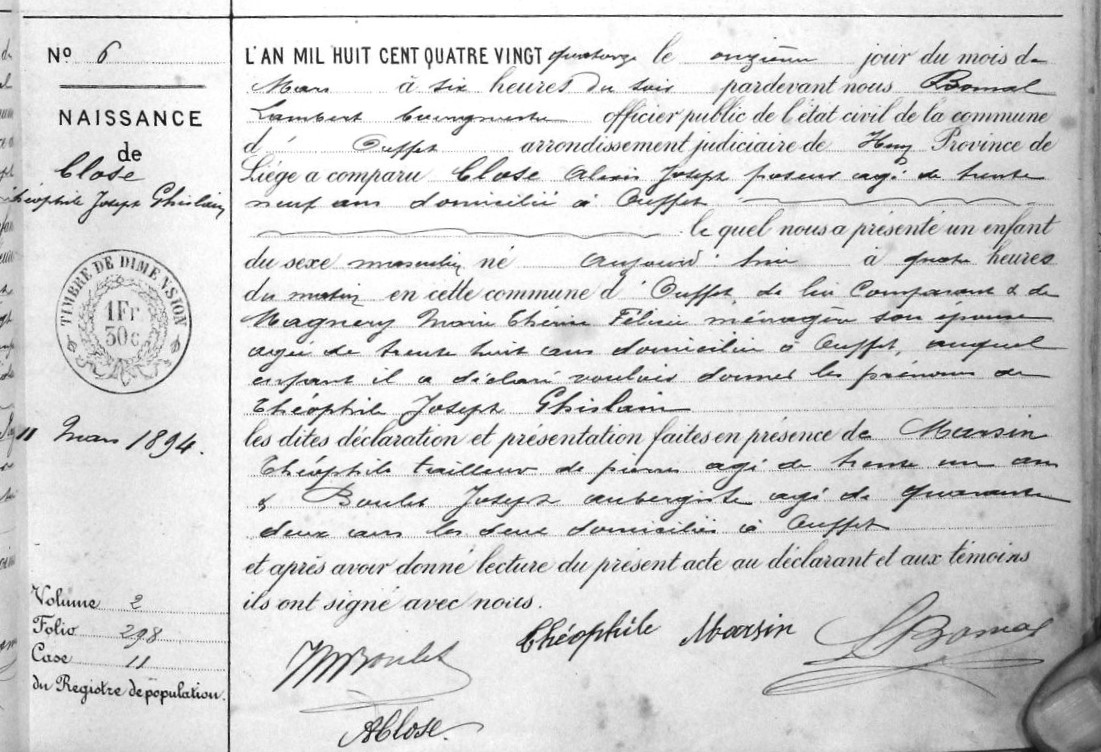 N° 6
NAISSANCE
de
Close
Théophile Joseph Ghislain
TIMBRE DE DIMENSION
1 Fr
30 c
11 Mars 1894.
Volume 2
Folio 298
Case 11
du Registre de population.
L'AN MIL HUIT CENT QUATRE VINGT quatorze le onzième jour du mois de
Mars à six heures du soir pardevant nous Bomal
Lambert bourgmestre officier public de l'état civil de la commune
d' Ouffet arrondissement judiciaire de Huy Province de
Liége a comparu Close Alexis Joseph poseur agé de trente
neuf ans domicilié à Ouffet
le quel nous a présenté un enfant
du sexe masculin né aujourd'hui à quatre heures
du matin en cette commune d'Ouffet, de lui Comparant & de
Magnery Marie Thérèse Félicie ménagère son épouse
agée de trente huit ans domiciliée à Ouffet, auquel
enfant il a déclaré vouloir donner les prénoms de
Théophile Joseph Ghislain
les dites déclaration et présentation faites en présence de Marsin
Théophile tailleur de pierres agé de trente un ans
& Boulet Joseph aubergiste agé de quarante
deux ans les deux domiciliés à Ouffet
et après avoir donné lecture du présent acte au déclarant et aux témoins
ils ont signé avec nous.
Théophile Marsin
L Bomal
Boulet
A Close.